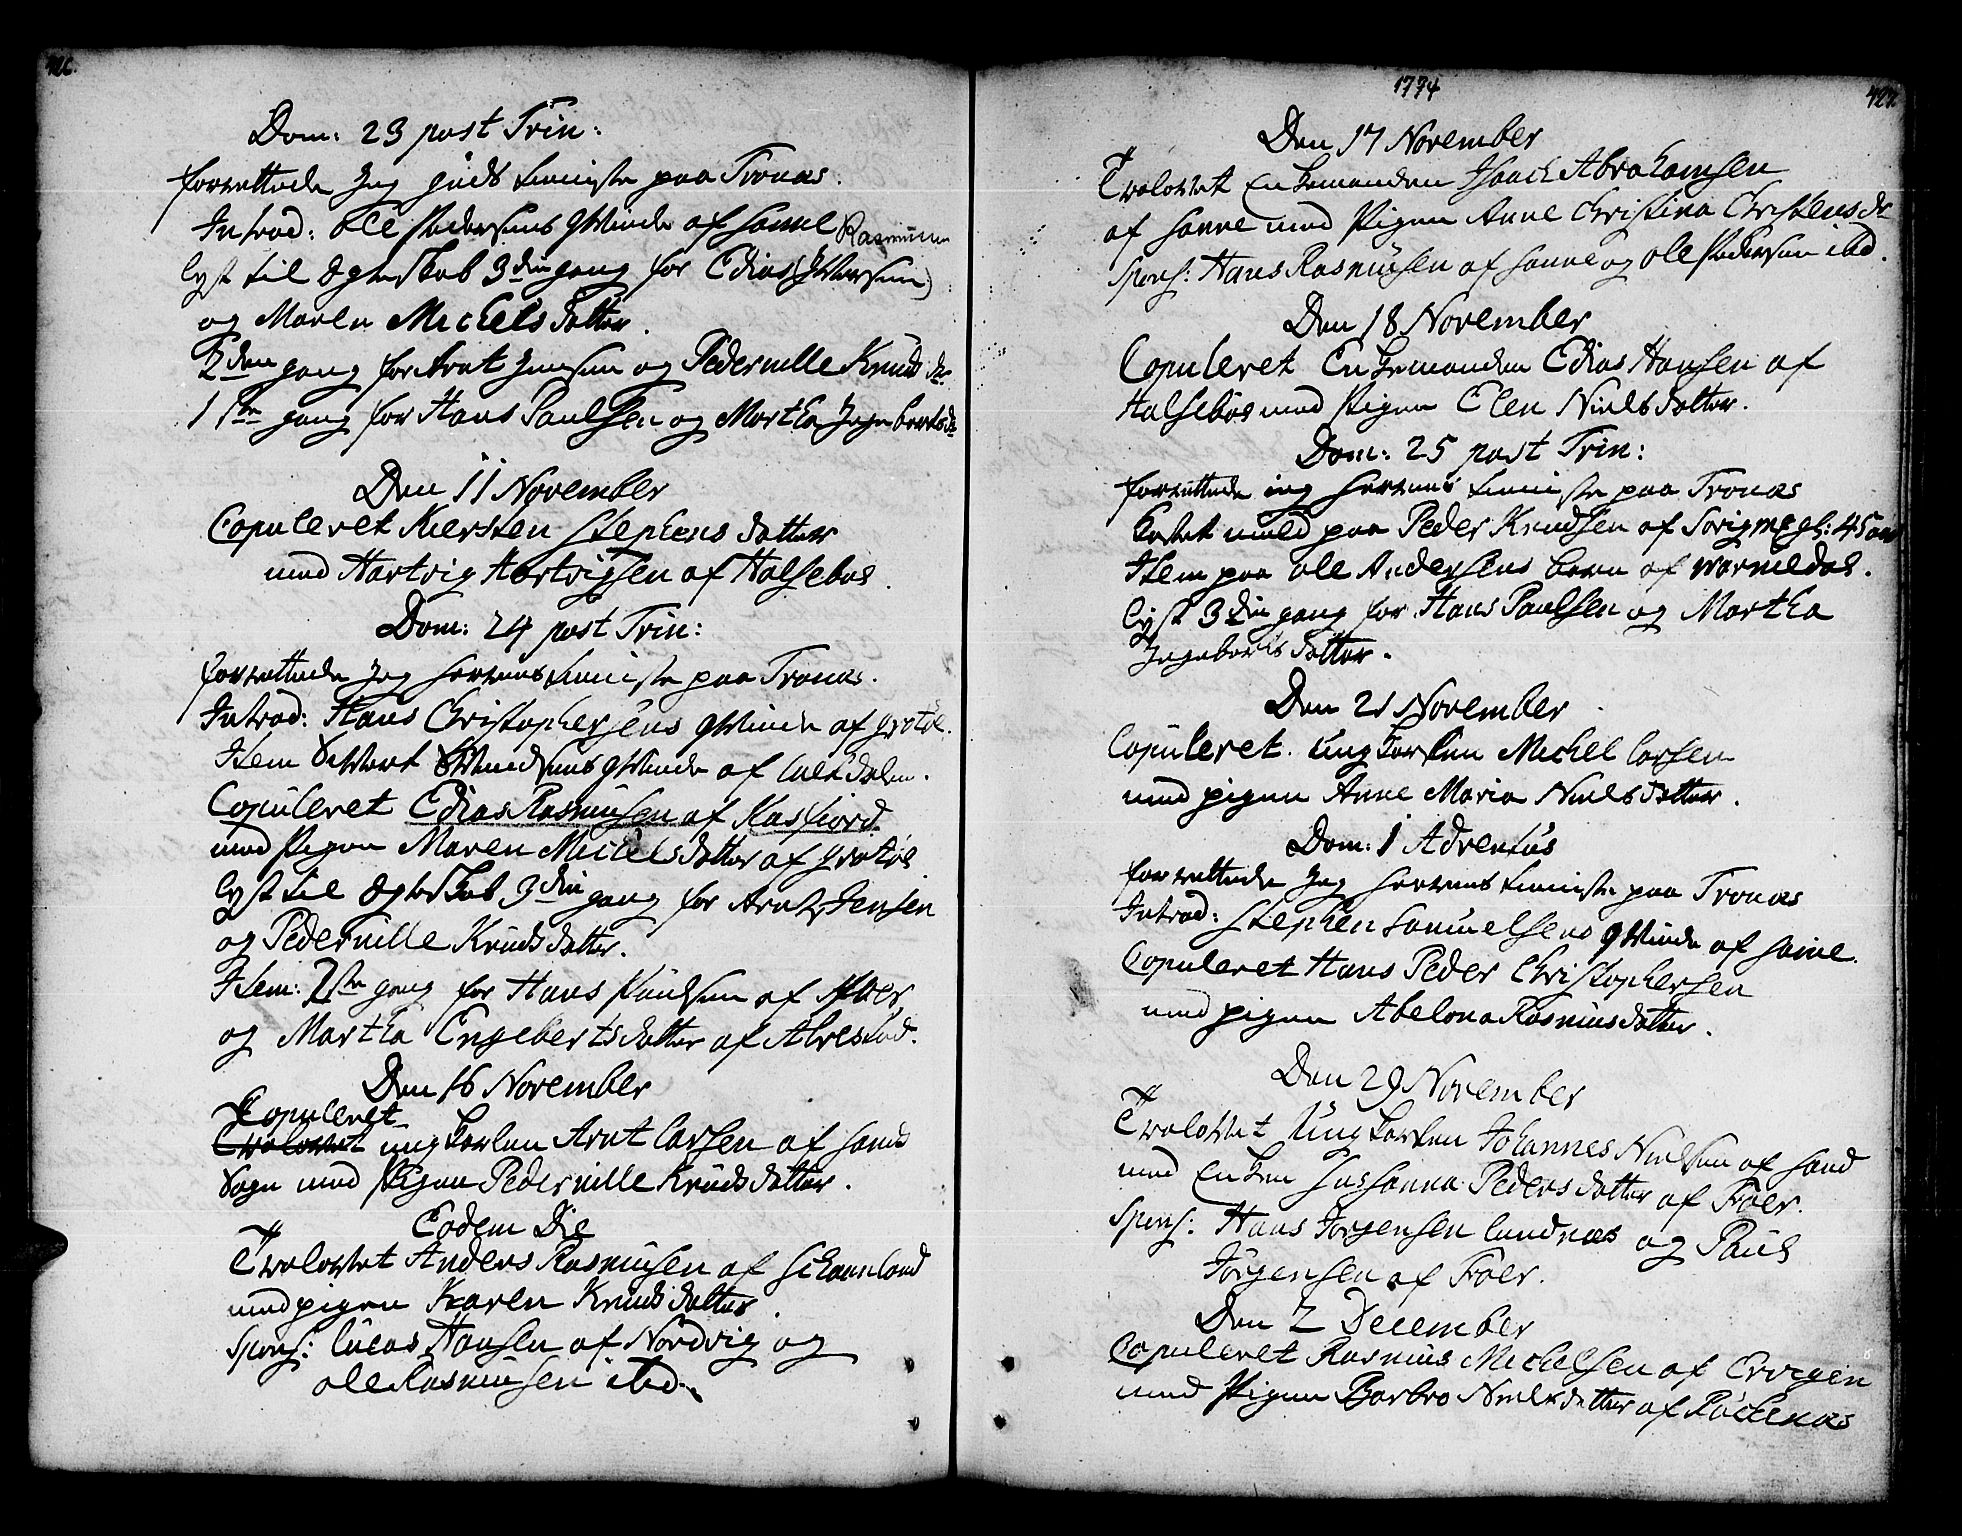 426.
Dom: 23 post Trin:
forrettede Jeg Guds tieniste paa Tronæs.
Introd: Ole Pedersens qvinde af Sanne
Rasmusen
lyst til Ægteskab 3die gang for Edias (Iversen)
og Maren Michelsdatter.
2den gang for Arnt Jensen og Pedernille Knudsdr
1ste gang for Hans Paulsen og Martha Ingebertsdr
Den 11 November
Copuleret Kiersten Stephensdatter
med Hartvig Hartvigsen af Halsebøe.
Dom: 24 post Trin:
forrettede Jeg Herrens tieniste paa Tronæs.
Introd: Hans Christophersens qvinde af Grøtøe.
Item Sivert qvinde af
Copuleret Edias Rasmusen af Kasfiord
med Pigen Maren Michelsdatter af Grøtøe
lyst til Ægteskab 3die gang for Arnt Jensen
og Pedernille Knudsdatter.
Item: 2den gang for Hans Paulsen af
og Martha Engebertsdatter af Alvestad.
Den 16 November
Copuleret
Trolovet ungkarlen Arnt Larsen af Sands
Sogn med Pigen Pedernille Knudsdatter.
Eodem Die
Trolovet Anders Rasmusen af Schaanland
med pigen Karen Knudsdatter.
Spons: Lucas Hansen af Nordvig og
Ole Rasmusen ibid.
1774
427.
Den 17 November
Trolovet Enkemanden Isach Abrahamsen
af Sanne med Pigen Anne Christina Christensdr
Spons: Hans Rasmusen af Sanne og Ole Pedersen ibd.
Den 18 November
Copuleret Enkemanden Edias Hansen af
Halsebøe med Pigen Elen Nielsdatter.
Dom: 25 post Trin:
forrettede ieg Herrens tieniste paa Tronæs
Kastet muld paa Peder Knudsen af Sørig gl: 45 aar
Item paa Ole Andersens barn af
lyst 3die gang for Hans Paulsen og Martha
Ingebertsdatter.
Den 21 November
Copuleret ungkarlen Michel Larsen
med pigen Anne Maria Nielsdatter.
Dom: 1 Adventus
forrettede Jeg Herrens tieniste paa Tronæs
Introd: Stephen Samuelsens qvinde af Sanne.
Copuleret Hans Peder Christophersen
med pigen Abelona Rasmusdatter.
Den 29 November
Trolovet Ungkarlen Johannes Nielsen af Sand
med Enken Susanna Pedersdatter af Froer.
Spons: Hans Jørgensen Lundnæs og Paul
Jørgensen af Froer.
Den 2 December
Copuleret Rasmus Michelsen af Ervigen
med Pigen Barbro Nielsdatter af Røchenæs